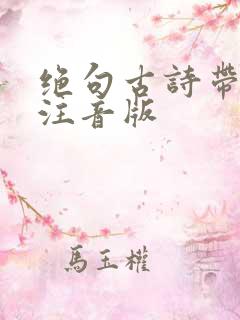 绝句古詩帶
注音版
馬玉權